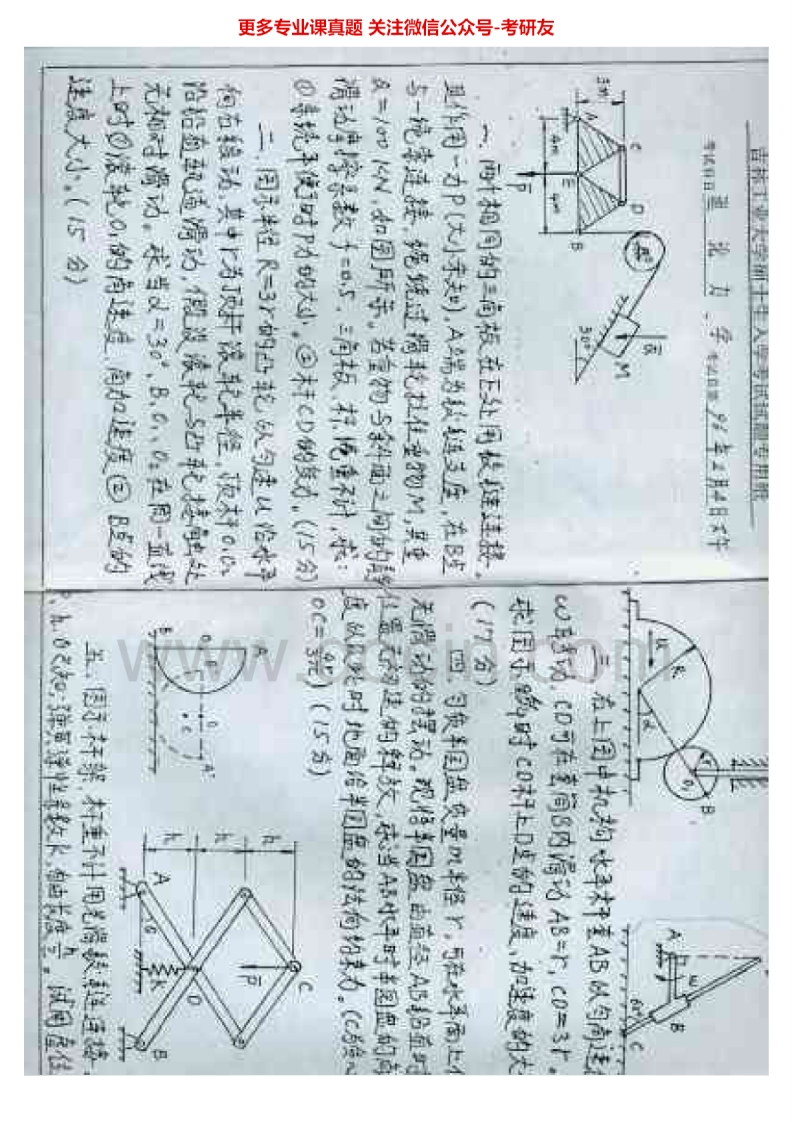 更多专业课真题 关注微信公众号-考研友
吉林工业大学硕士生入学考试试题专用纸
考试科目 理论力学 考试日期 96年2月4日
一、两个相同的三角板在E处用铰链连接。
且作用一力P(大小未知), A端为铰链支座, 在B点
与一绳索连接, 绳绕过滑轮拉住重物M, 其重
Q=100KN, 如图所示。若重物与斜面之间的静
滑动摩擦系数f=0.5, 三角板、杆、绳重不计, 求:
①系统平衡时P力的大小。②杆CD的内力。(15分)
二、图示半径R=3r的凸轮以匀速u沿水平
向右移动, 其中r为顶杆滚轮半径, 顶杆O₁O₂
沿铅直轨道滑动, 假设滚轮与凸轮接触处
无相对滑动。求当α=30°, B、O₁、O₂在同一直线
上时①滚轮O₁的角速度、角加速度②B点的
速度大小。(15分)
3m
A
C
E
D
B
4m
4m
P
Q
M
30°
u
R
α
r
O₁
B
A
ω
B
60°
C
三、右上图中机构水平杆重AB以匀角速
ω转动, CD可在套筒B内滑动AB=r, CD=3r。
求图示瞬时CD杆上D点的速度、加速度的大
(17分)
四、匀质半圆盘质量m半径r, 可在水平面上作
无滑动的摆动。现将半圆盘由直径AB铅直时
位置无初速的释放, 求当AB水平时半圆盘的角
度以及此时地面给半圆盘的法向约束力。(C为质心
OC=4r/3π) (15分)
A
B
O
C
A'
h
h
h
A
θ
K
D
B
P
C
五、图示杆架, 杆重不计用光滑铰链连接。
P、h、θ已知; 弹簧弹性系数K, 自由长度h/2。试用虚位
www.
.com